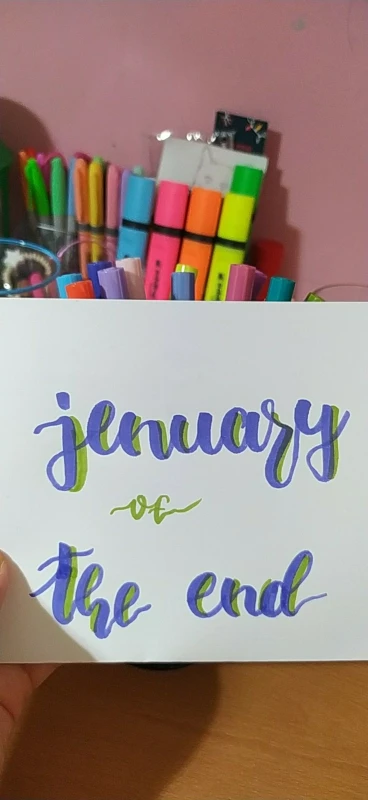 jenuary
of
the end